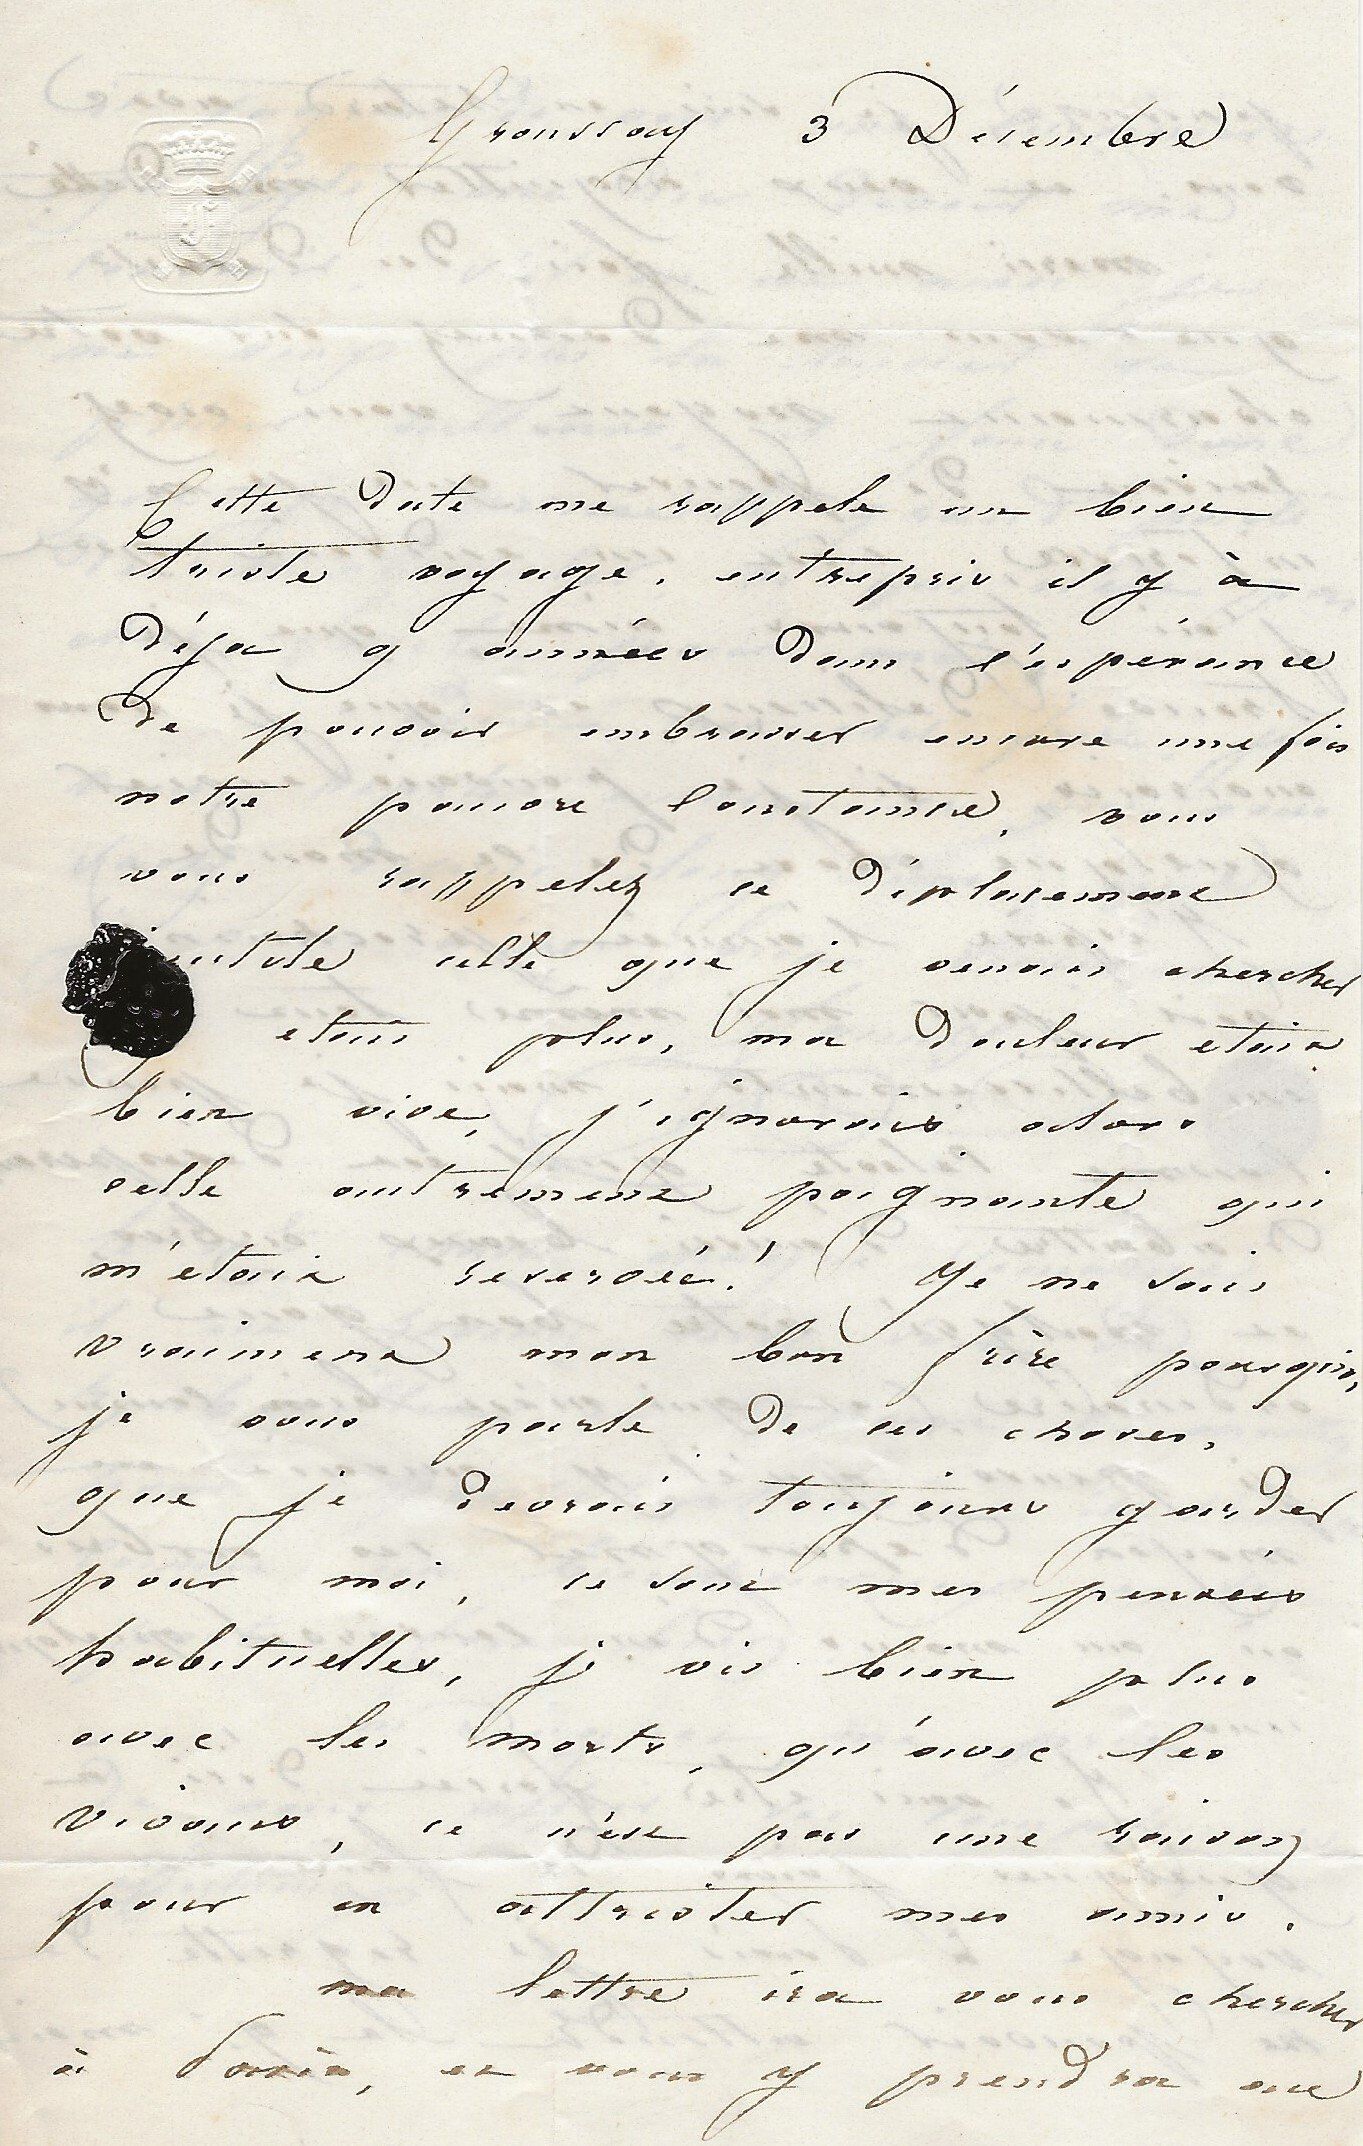 Groussouy 3 Décembre
Cette date me rappele un bien
triste voyage, entrepris il y à
déja 9 années dans l'espérance
de pouvoir embrasser encore une fois
notre pauvre Constance, vous
vous rappelez ce déplacement
inutile celle que je venais chercher
etais plus, ma douleur etait
bien vive, j'ignorais alors
celle autrement poignante qui
m'etait reservéé! Je ne sais
vraiment mon bon frère pourquoi,
je vous parle de ces choses,
que je devrais toujours garder
pour moi, ce sont mes pensées
habituelles, je vis bien plus
avec les morts, qu'avec les
vivans, ce n'est pas une raison
pour en attrister mes amis.
ma lettre ira vous chercher
à Paris, et vous y prendra au